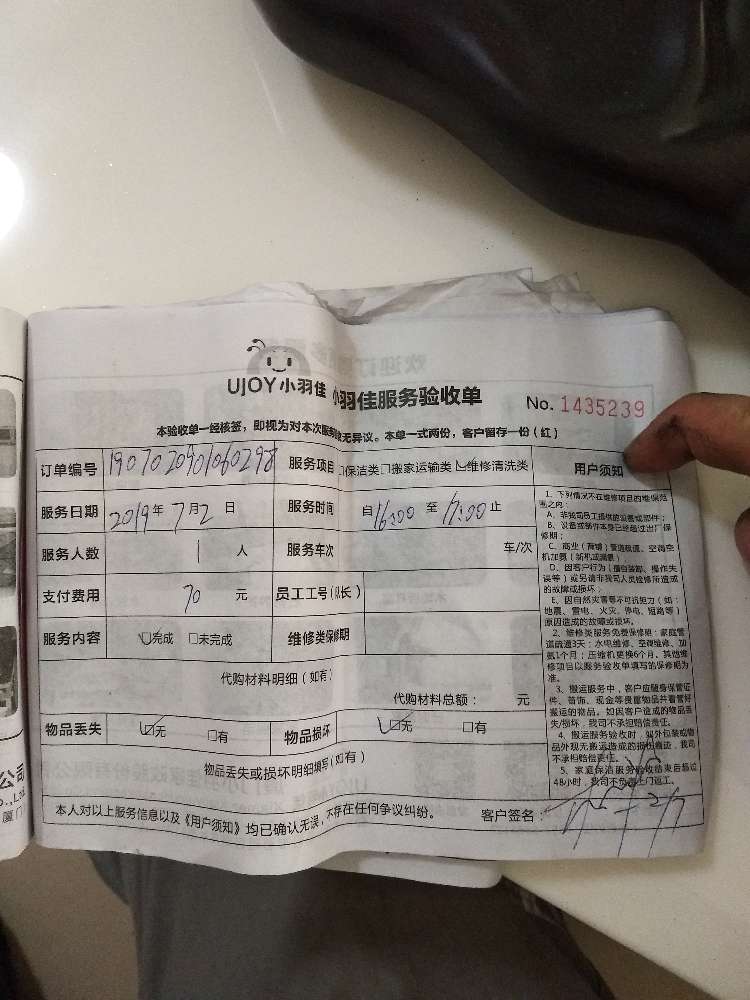 UJOY小羽佳 小羽佳服务验收单
No. 1435239
本验收单一经核签，即视为对本次服务无异议。本单一式两份，客户留存一份（红）
订单编号 190702090106029８ 服务项目 □保洁类□搬家运输类☑维修清洗类 用户须知
服务日期 2019年7月2日 服务时间 自16:00至17:00止
服务人数 1 人 服务车次 车/次
支付费用 70 元 员工工号（队长）
服务内容 ☑完成 □未完成 维修类保修期
代购材料明细（如有）
代购材料总额： 元
物品丢失 ☑无 □有 物品损坏 ☑无 □有
物品丢失或损坏明细填写（如有）
本人对以上服务信息以及《用户须知》均已确认无误，不存在任何争议纠纷。 客户签名：
1、下列情况不在维修项目的维保范
围之内：
A、非我司员工提供的设备或部件；
B、设备或部件本身已经超过出厂保
修期；
C、商业（店铺）管道疏通、空调空
机加氨（新机或漏氨）
D、因客户行为（擅自装卸、操作失
误等）或另请非我司人员检修所造成
的故障或损坏；
E、因自然灾害等不可抗拒力（如：
地震、雷电、火灾、停电、短路等）
原因造成的故障或损坏。
2、维修类服务免费保修期：家庭管
道疏通3天；水电维修、空调维修、加
氨1个月；压缩机更换6个月。其他维
修项目以服务验收单填写的保修期为
准。
3、搬运服务中，客户应随身保管证
件、首饰、现金等贵重物品并看管好
搬运的物品。如因客户造成的物品丢
失/损坏，我司不承担赔偿责任。
4、搬运服务验收时，如外包装或物
品外观无搬运造成的损伤痕迹，我司
不承担赔偿责任。
5、家庭保洁服务验收结束后超过
48小时，我司不负责上门返工。
公司
o.,Ltd
厦门